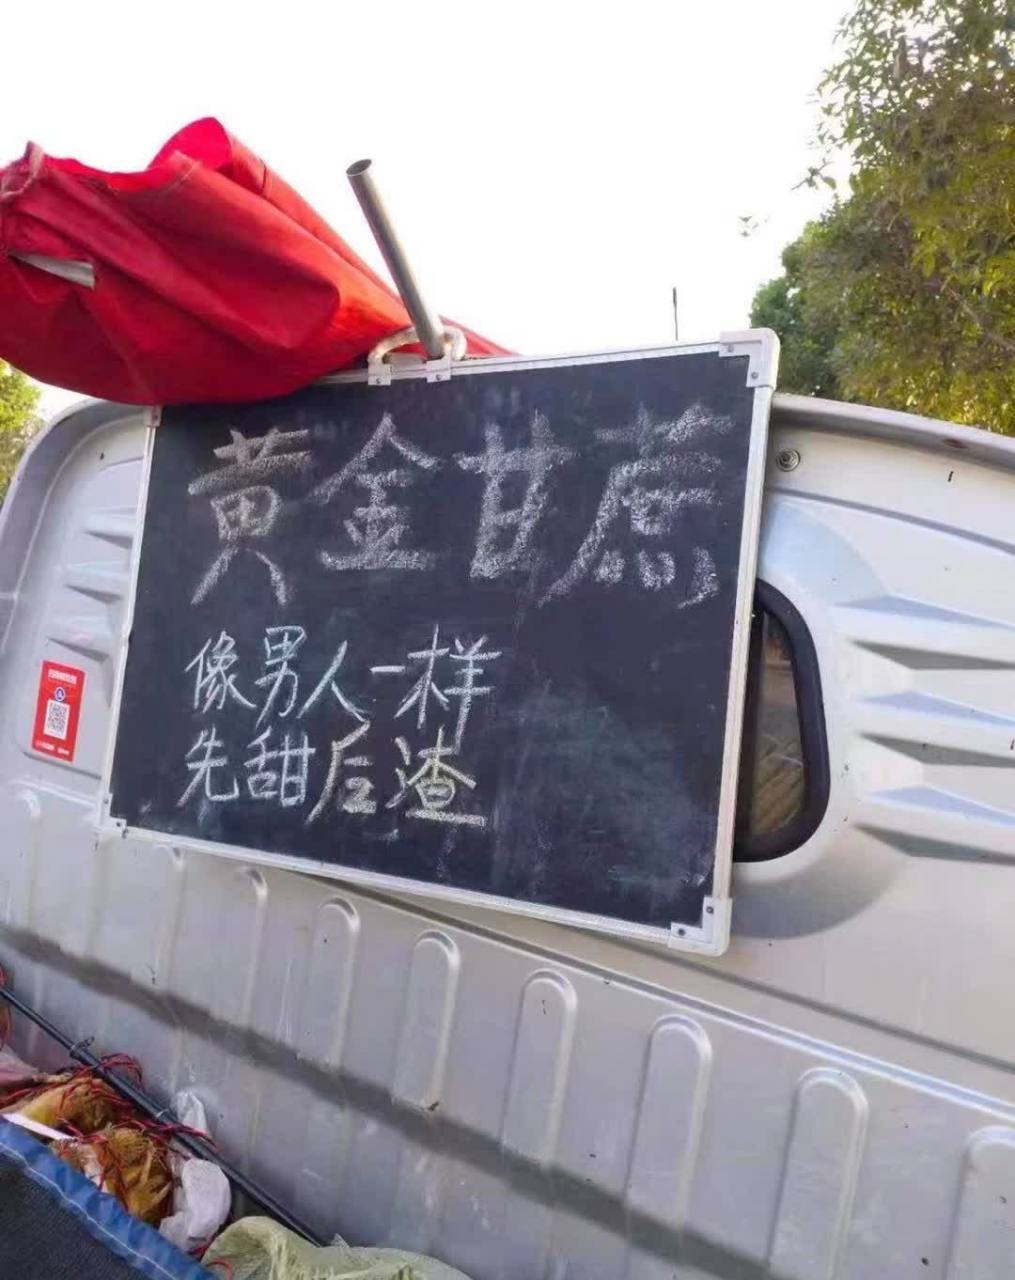 黄金甘蔗
像男人一样
先甜后渣